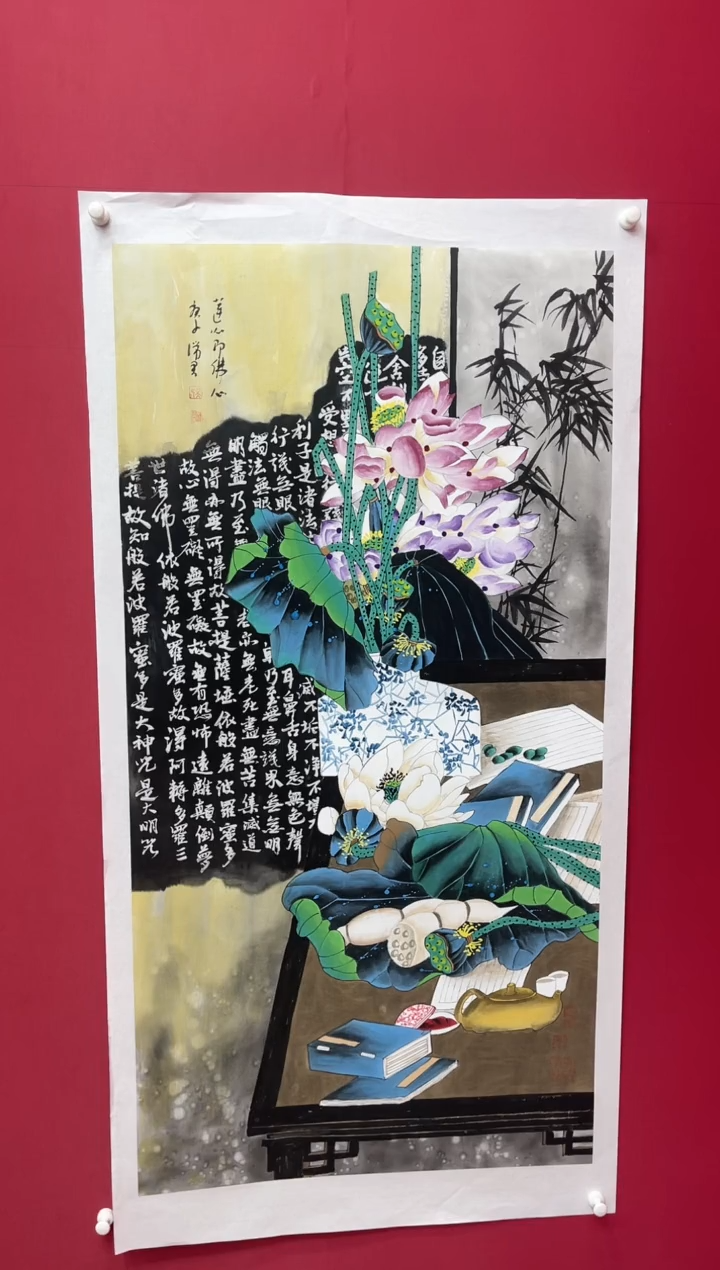 自
舍
受想
利子是諸法 減不垢不淨不增
行識無眼耳鼻舌身意無色聲
觸法無眼 乃至無意識界無無明
明盡乃至 老亦無老死盡無苦集滅道
無得亦無所得故菩提薩埵依般若波羅蜜多
故心無罣礙無罣礙故無有恐怖遠離顛倒夢
世諸佛依般若波羅蜜多故得阿耨多羅三
菩提故知般若波羅蜜多是大神咒是大明咒
蓮心即 心
庚子